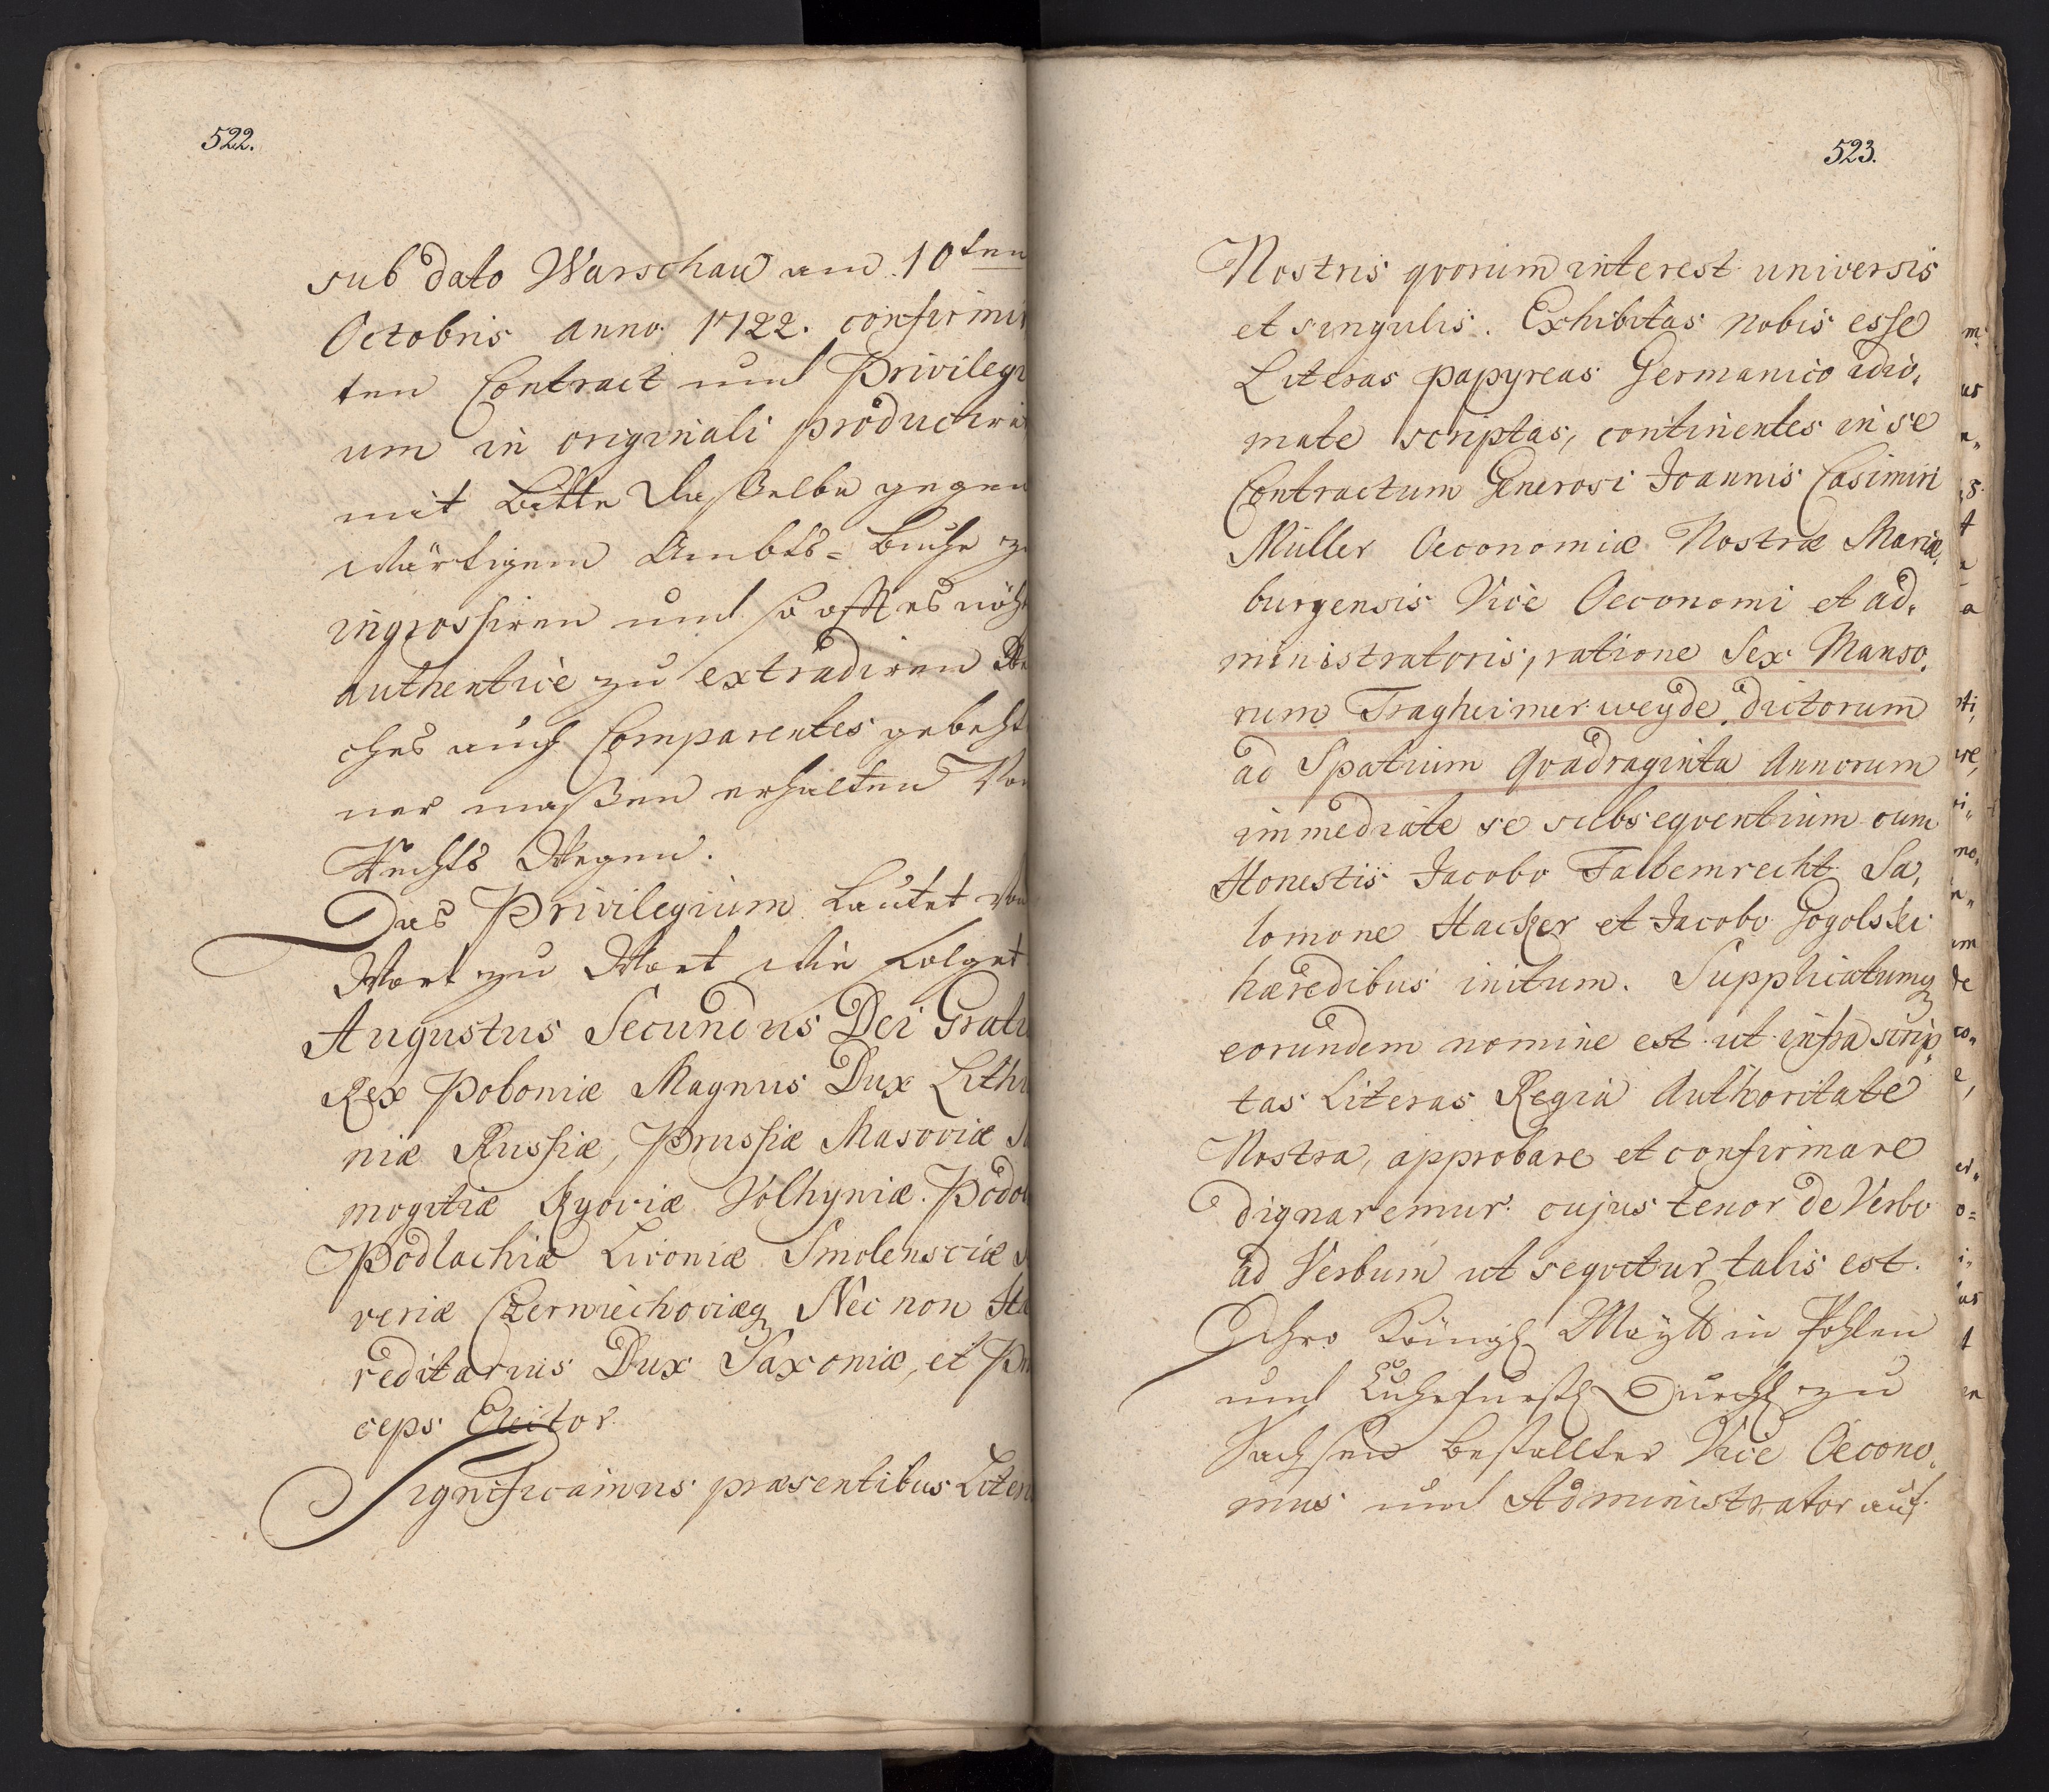 522.
sub dato Warschau am 10ten
Octobris anno 1722. confirmir
ten Contract und Privilegi
um in originali producirt
mit Bitte daßelbe gegen
wärtigem Ambts= Buche zu
ingrossiren und so offt es nöht
authentice zu extradiren We
ches auch Comparentes gebeht
ner maßen erhalten Von
Rechts Wegen.
Das Privilegium Lautet von
Wort zu Wort wie folget
Augustus Secundus Dei Grati
Rex Poloniæ Magnus Dux Lithu
niæ Russiæ, Prussiæ Masoviæ Sa
mogitiæ Kyoviæ Volhyniæ Podol
Podlachiæ Livoniæ Smolensciæ S
veriæ Czerniechoviæq Nec non Hæ
reditarius Dux Saxoniæ, et Prin
ceps Elector
Significamus præsentibus Liter
523.
Nostris qvorum interest universis
et singulis. Exhibitas nobis esse
Literas papyreas Germanico idio,
mate scriptas, continentes in se
Contractum Generosi Joannis Casimiri
Müller Oeconomiæ Nostræ Mariæ,
burgensis Vice Oeconomi et ad,
ministratoris, ratione Sex Manso,
rum Tragheimer weyde dictorum
ad Spatium qvadraginta Annorum
immediate se subseqventium cum
Honestis Jacobo Falbemrecht Sa,
lomone Hacker et Jacobo Gogolski
hæredibus initum. Supplicatumq
eorundem nomine est ut infra scrip,
tas Literas Regia Authoritate
Nostra, approbare et confirmare
dignaremur cujus tenor de Verbo
ad Verbum ut seqvitur talis est.
Ihro Königl Maytt in Pohlen
und Luhrfürstl Durchl zu
Sachsen bestallter Vice Oecono,
mus und Administrator auf